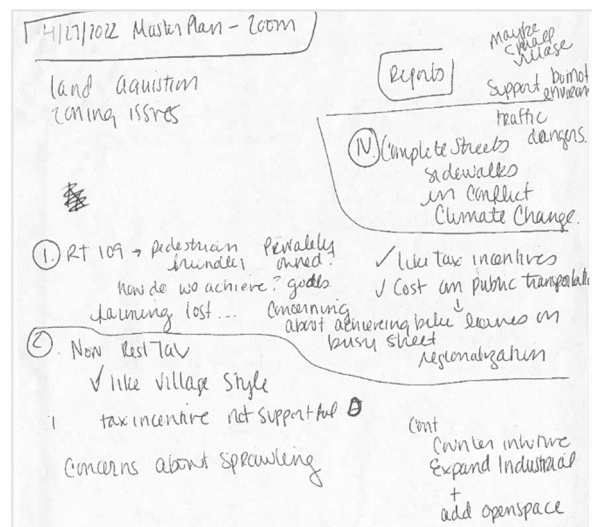 4/27/2022 Master Plan - Zoom
land aquistion
zoning issues
Reports
maybe
small
village
Support but not
environ
traffic
dangers.
IV. Complete Streets
sidewalks
in conflict
Climate Change.
1. RT 109 → pedestrian
friendly
Privately
owned?
how do we achieve? goals
planning lost...
✓ like tax incentives
✓ Cost on public transportation
concerning
about achieving bike leaves on
busy street
regionalization
2. Non Res Tax
✓ like village style
tax incentive not supportful
Concerns about sprawling
Cont
Counter intuitive
Expand Industrial
+
add openspace